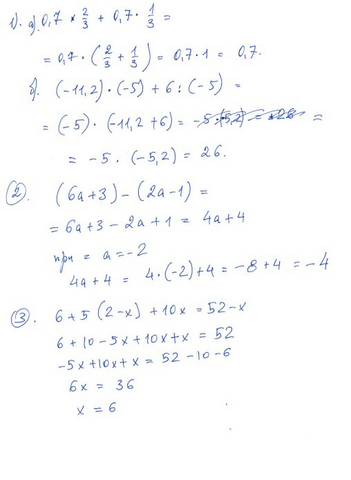 1). а). 0,7 * 2/3 + 0,7 · 1/3 =
= 0,7 · (2/3 + 1/3) = 0,7 · 1 = 0,7.
б). (-11,2) · (-5) + 6 : (-5) =
= (-5) · (-11,2 + 6) = =
= -5 · (-5,2) = 26.
2. (6a+3) - (2a-1) =
= 6a+3 - 2a+1 = 4a+4
при = a = -2
4a+4 = 4·(-2)+4 = -8+4 = -4
3. 6+5(2-x)+10x = 52-x
6+10-5x+10x+x = 52
-5x+10x+x = 52-10-6
6x = 36
x = 6